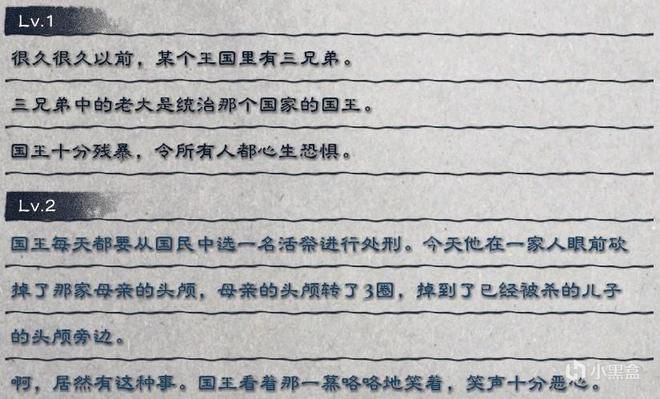 Lv.1
很久很久以前，某个王国里有三兄弟。
三兄弟中的老大是统治那个国家的国王。
国王十分残暴，令所有人都心生恐惧。
Lv.2
国王每天都要从国民中选一名活祭进行处刑。今天他在一家人眼前砍
掉了那家母亲的头颅，母亲的头颅转了3圈，掉到了已经被杀的儿子
的头颅旁边。
啊，居然有这种事。国王看着那一幕咯咯地笑着，笑声十分恶心。
小黑盒